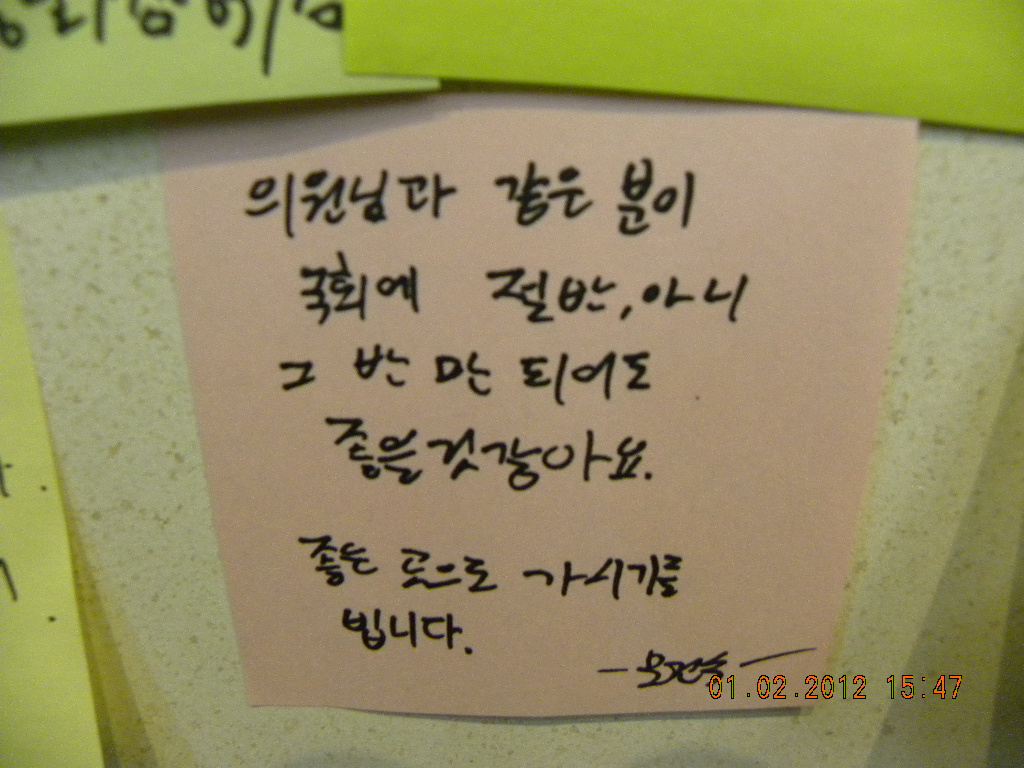 의원님과 같은 분이
국회에 절반, 아니
그 반 만 되어도
좋을것같아요.
좋은 곳으로 가시기를
빕니다.
01.02.2012 15:47